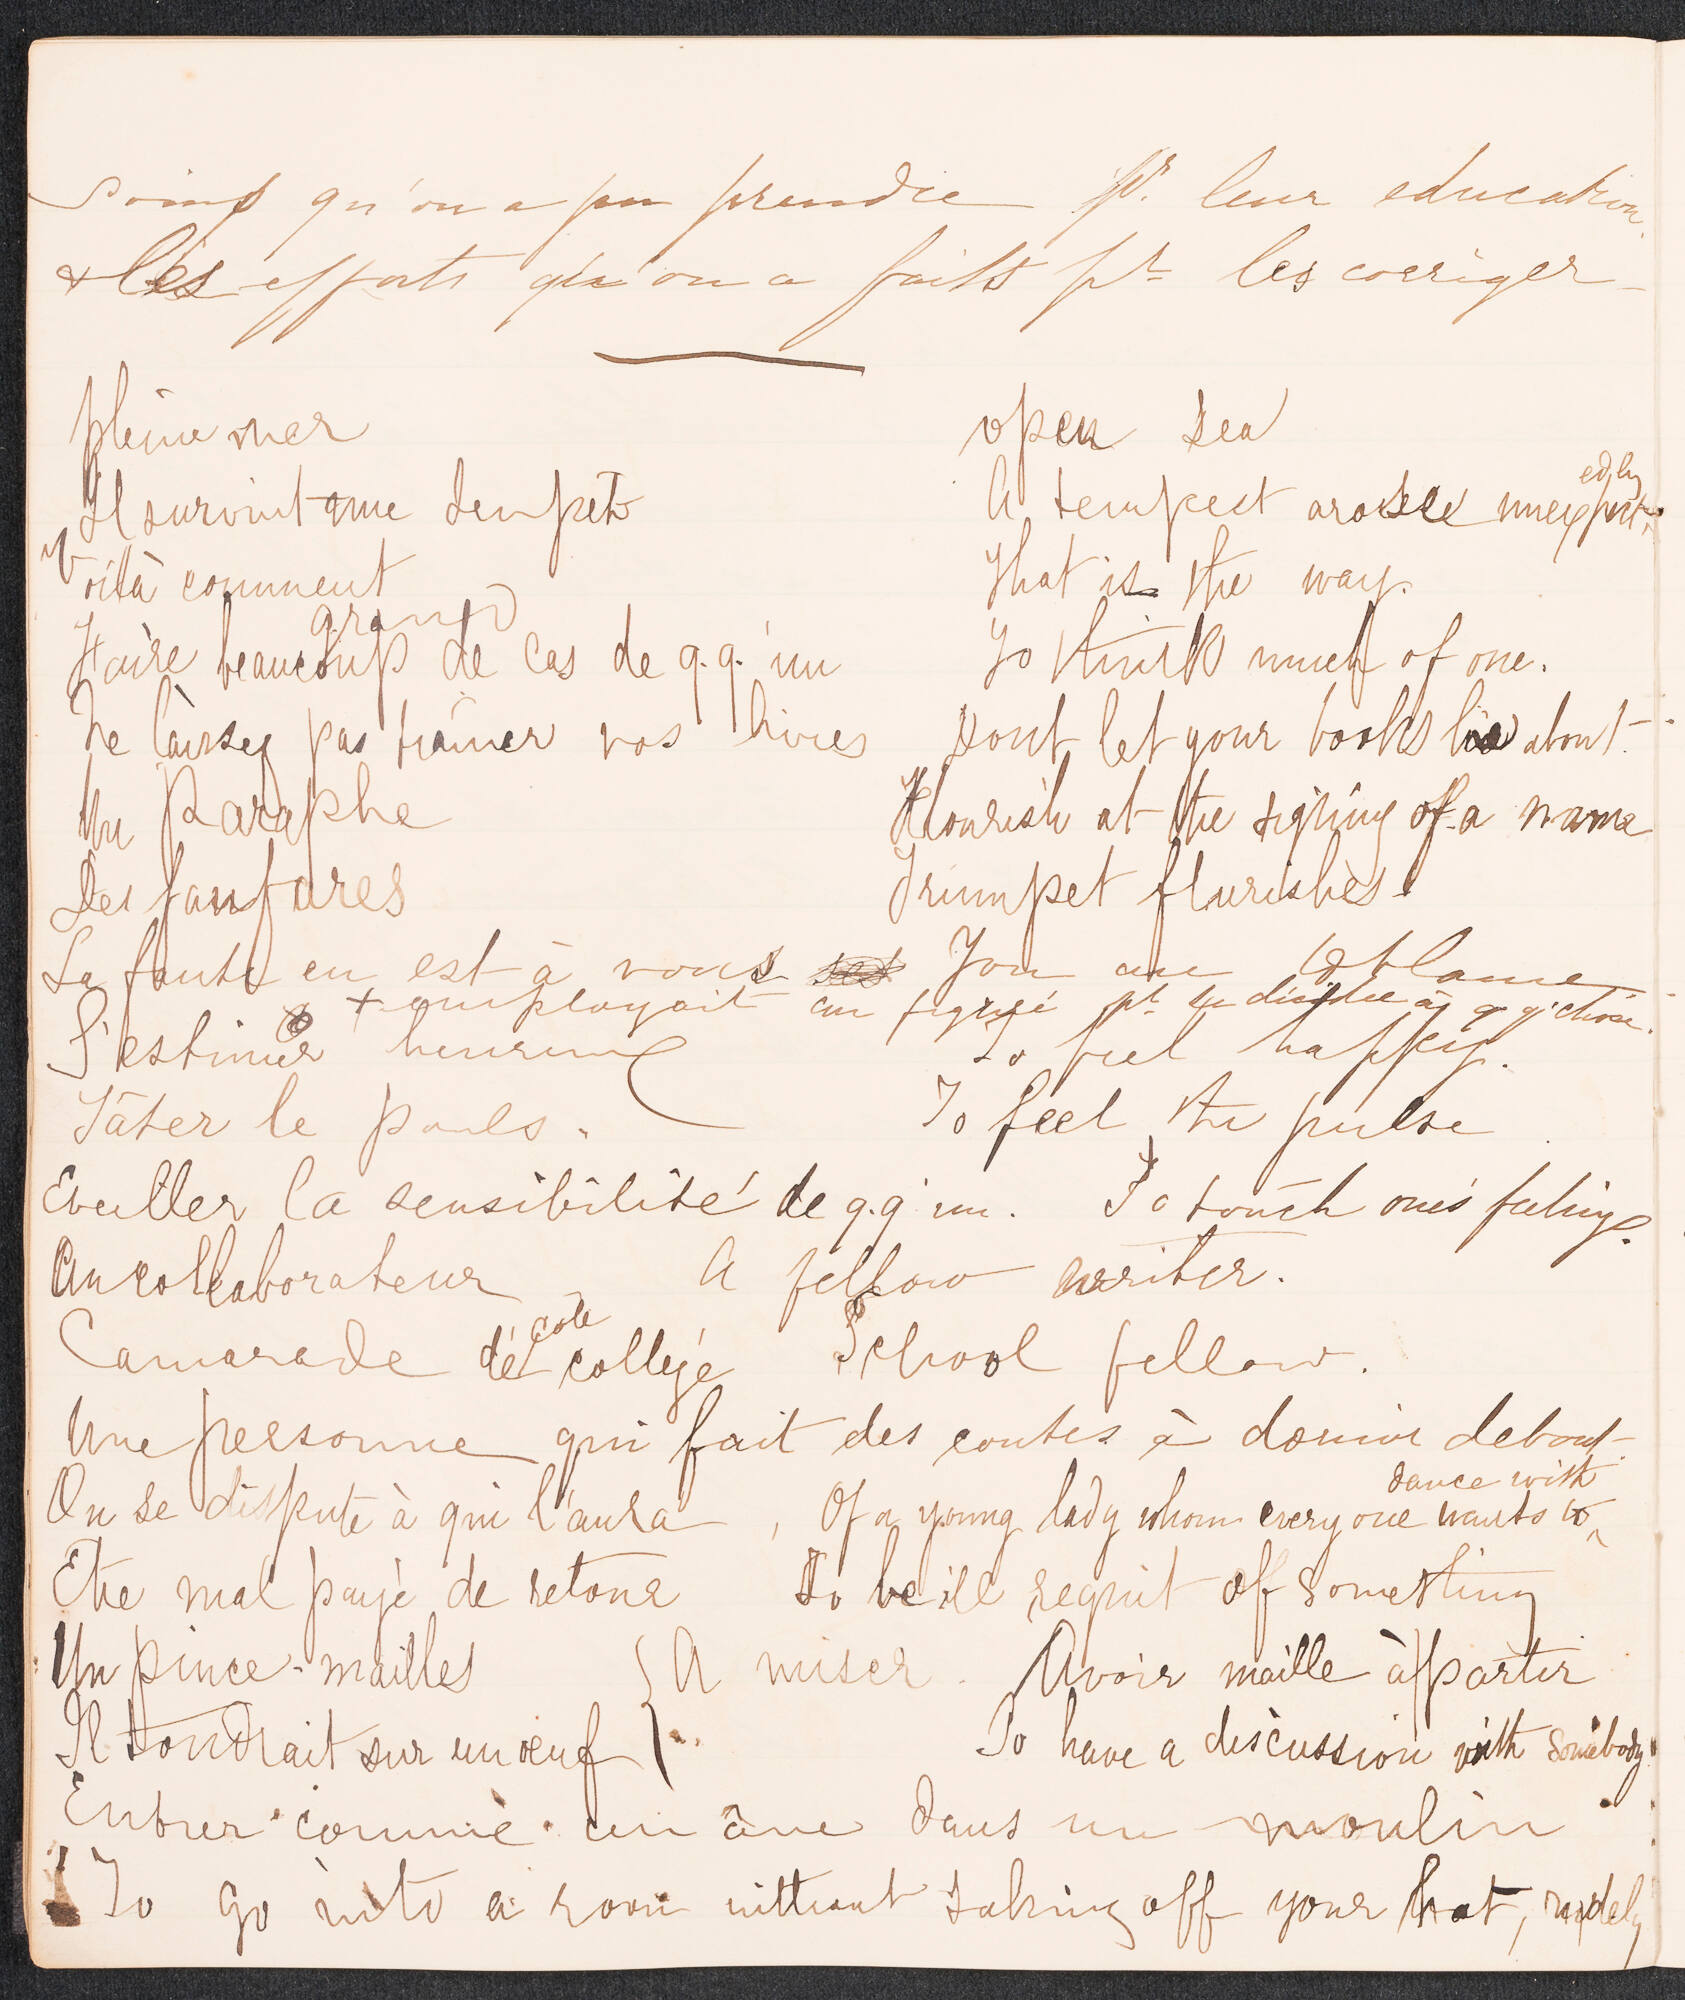 soins qu'on a pu prendre pr. leur education.
& les efforts qu'on a faits pr les corriger -
pleine mer open sea
Il survint une tempête A tempest arose unexpectedly
Voilà comment That is the way.
Faire beaucoup grand de cas de q.q.'un To think much of one.
Ne laissez pas traîner vos livres Dont let your books lie about.
Un Paraphe Flourish at the signing of a name
Des fanfares Trumpet flurishes
La faute en est à vous You are to blame
+ employait au figuré pt se disculper q q'chose.
S'estimer heureux To feel happy.
Tâter le pouls. To feel the pulse
Eveiller la sensibilité de q.q'un. To touch one's feelings.
Un collaborateur A fellow writer.
Camarade d'école collège School fellow.
Une personne qui fait des contes à dormir debout.
On se dispute à qui l'aura, Of a young lady whom every one wants to dance with
Etre mal payé de retour To be ill requit of something
Un pince-mailles } A miser. Avoir maille à partir
Il tondrait sur un oeuf } To have a discussion with somebody
Entrer comme un âne dans un moulin
To go into a room without taking off your hat, rudely